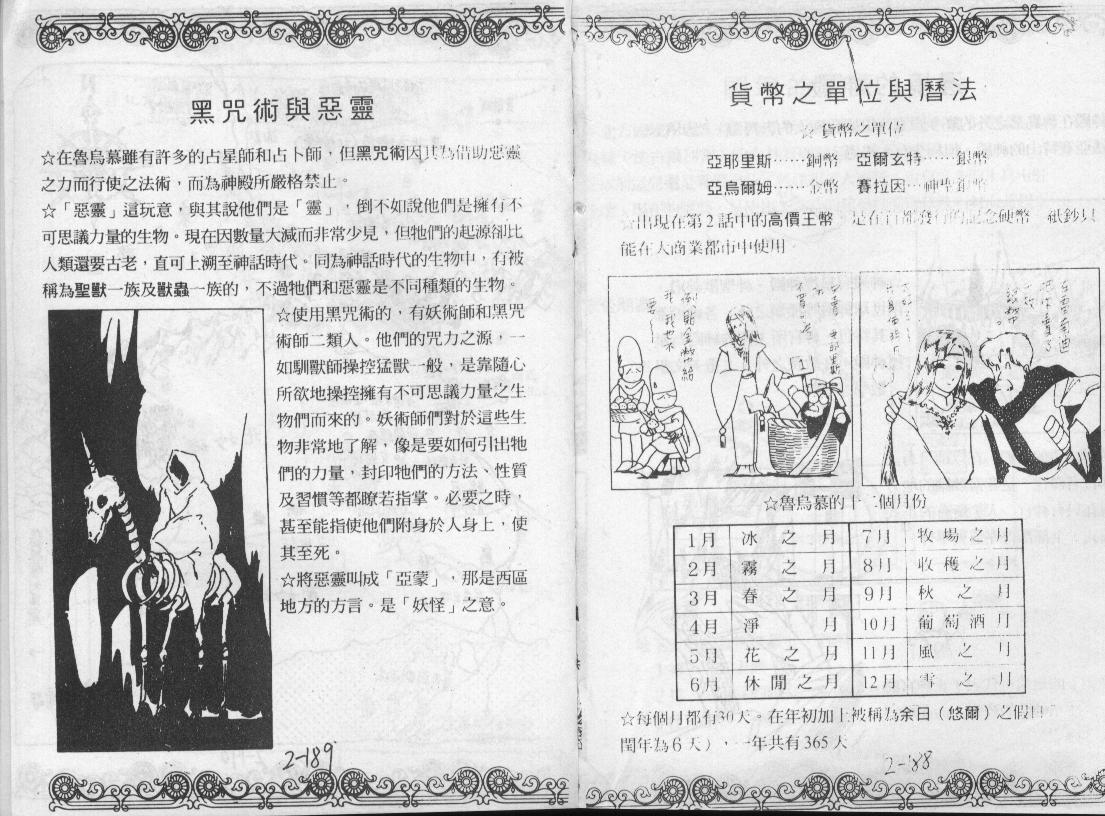 黑咒術與惡靈
☆在魯烏慕雖有許多的占星師和占卜師，但黑咒術因其為借助惡靈
之力而行使之法術，而為神殿所嚴格禁止。
☆「惡靈」這玩意，與其說他們是「靈」，倒不如說他們是擁有不
可思議力量的生物。現在因數量大減而非常少見，但牠們的起源卻比
人類還要古老，直可上溯至神話時代。同為神話時代的生物中，有被
稱為聖獸一族及獸蟲一族的，不過牠們和惡靈是不同種類的生物。
☆使用黑咒術的，有妖術師和黑咒
術師二類人。他們的咒力之源，一
如馴獸師操控猛獸一般，是靠隨心
所欲地操控擁有不可思議力量之生
物們而來的。妖術師們對於這些生
物非常地了解，像是要如何引出牠
們的力量，封印牠們的方法、性質
及習慣等都瞭若指掌。必要之時，
甚至能指使他們附身於人身上，使
其至死。
☆將惡靈叫成「亞蒙」，那是西區
地方的方言。是「妖怪」之意。
2-189
貨幣之單位與曆法
☆ 貨幣之單位
亞耶里斯……銅幣　亞爾玄特……銀幣
亞烏爾姆……金幣　賽拉因…神聖銀幣
☆出現在第2話中的高價王幣，是在首都發行的紀念硬幣，紙鈔只
能在大商業都市中使用。
☆魯烏慕的十二個月份
1月 冰之月 7月 牧場之月
2月 霧之月 8月 收穫之月
3月 春之月 9月 秋之月
4月 淨月 10月 葡萄酒月
5月 花之月 11月 風之月
6月 休閒之月 12月 雪之月
☆每個月都有30天。在年初加上被稱為余日（悠爾）之假日
閏年為6天），一年共有365天
2-188